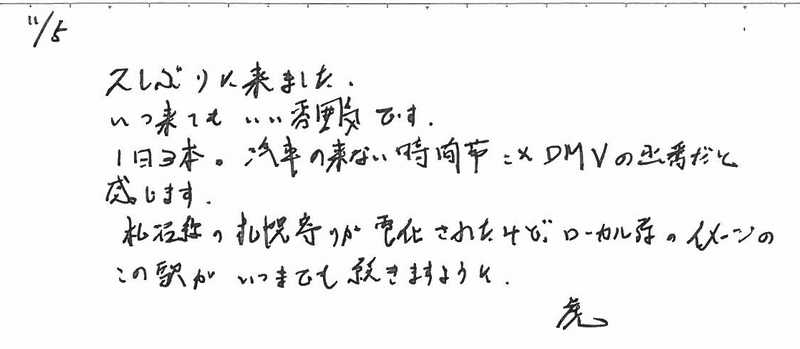 11/5
久しぶりに来ました.
いつ来ても いい雰囲気です.
1日3本。汽車の来ない時間帯こそDMVの出番だと
感じます.
札沼線の札幌寄りが電化されたけど、ローカル線のイメージの
この駅が いつまでも続きますように.